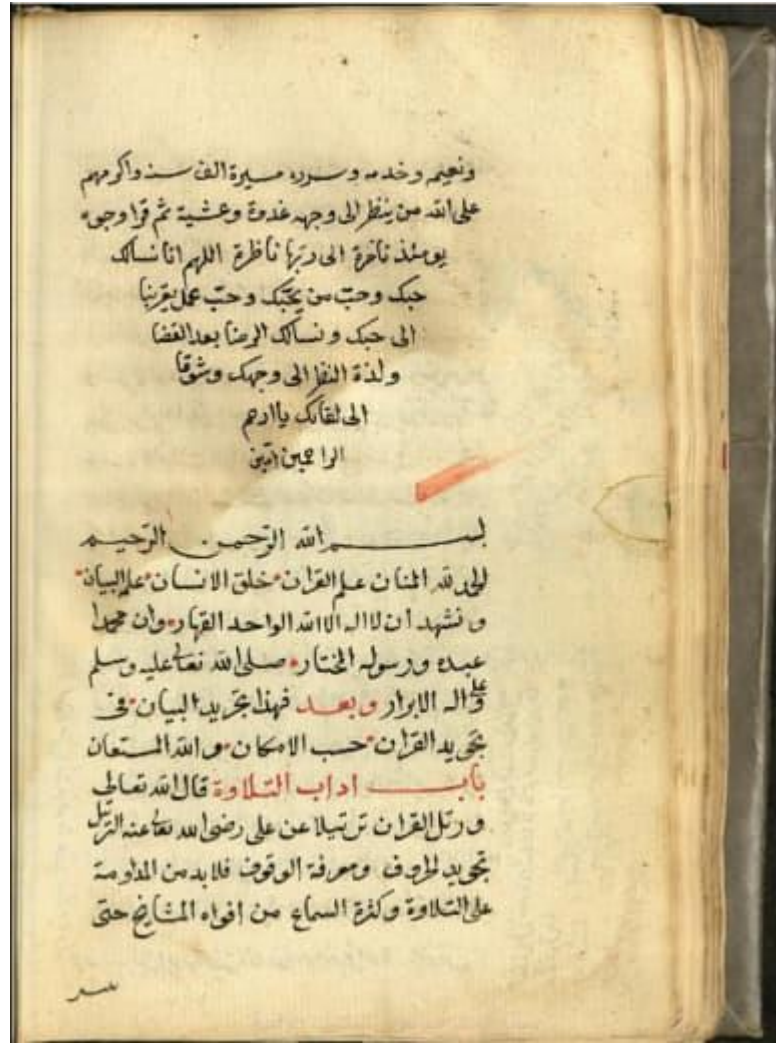 ونعيمه وخدمه وسرره مسيرة الف سنة واكرمهم
على الله من ينظر الى وجهه غدوة وعشية ثم قرا وجوه
يومئذ ناضرة الى ربها ناظرة اللهم انا نسالك
حبك وحبّ من يحبّك وحبّ عمل يقربنا
الى حبك ونسالك الرضا بعد القضا
ولذة النظر الى وجهك وشوقا
الى لقائك ياارحم
الراحمين امين
بسم الله الرّحمن الرّحيم
الحمد لله المنان علم القران خلق الانسان علم البيان
ونشهد أن لا اله الا الله الواحد القهار وان محمدا
عبده ورسوله المختار صلى الله تعالى عليه وسلم
وعلى اله الابرار وبعد فهذا تجريد البيان في
تجويد القران حسب الامكان والله المستعان
باب اداب التلاوة قال الله تعالى
ورتل القران ترتيلا عن على رضى الله تعالى عنه الترتيل
تجويد الحروف ومعرفة الوقوف فلا بد من المداومة
على التلاوة وكثرة السماع من افواه المشايخ حتى